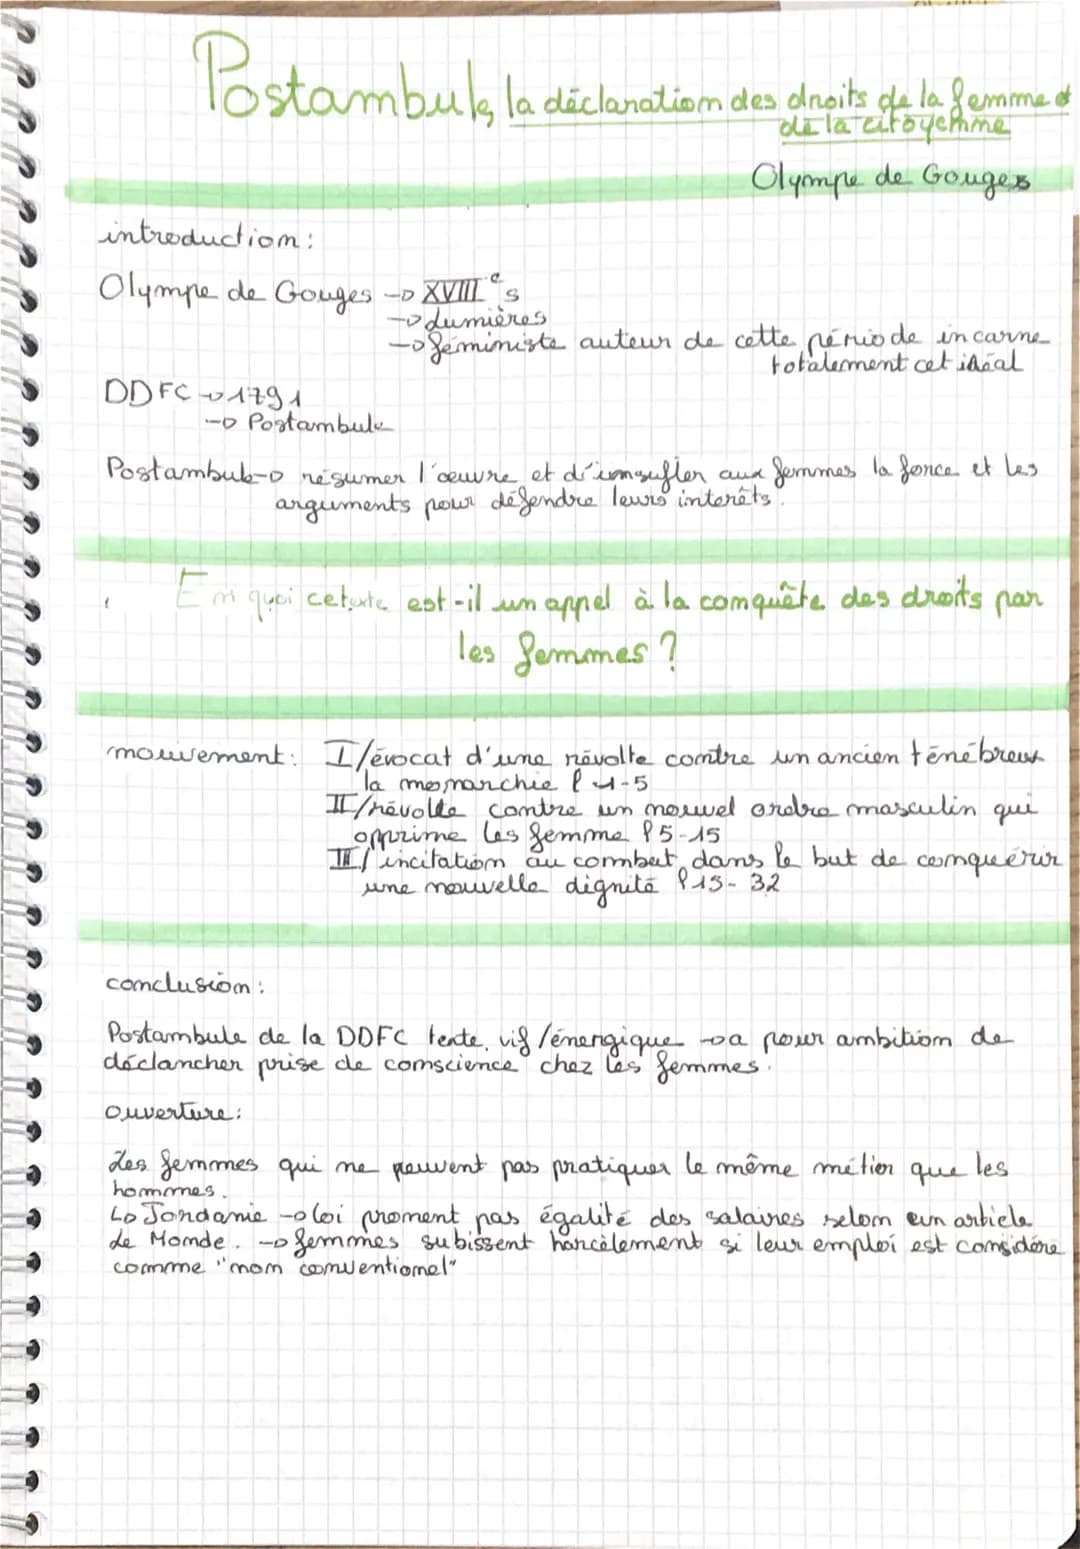 Postambule, la déclaration des droits de la femme et
de la citoyenne
Olympe de Gouges
introduction :
Olympe de Gouges → XVIII e s
→ Lumières
→ féministe auteur de cette période incarne
totalement cet idéal
DDFC → 1791
→ Postambule
Postambule → résumer l'œuvre et d'insufler aux femmes la force et les
arguments pour défendre leurs interêts.
En quoi cetexte est-il un appel à la conquête des droits par
les femmes ?
mouvement : I/ évocat d'une révolte contre un ancien ténébreux
la monarchie l 1-5
II/ révolte contre un nouvel ordre masculin qui
opprime les femme l 5-15
III/ incitation au combat dans le but de conquérir
une nouvelle dignité l 15-32
conclusion :
Postambule de la DDFC texte, vif / énergique → a pour ambition de
déclancher prise de conscience chez les femmes.
ouverture :
Les femmes qui ne peuvent pas pratiquer le même métier que les
hommes.
↳ Jordanie → loi proment pas égalité des salaires selon un article
de Monde. → femmes subissent harcèlement si leur emploi est considére
comme "non conventionel"